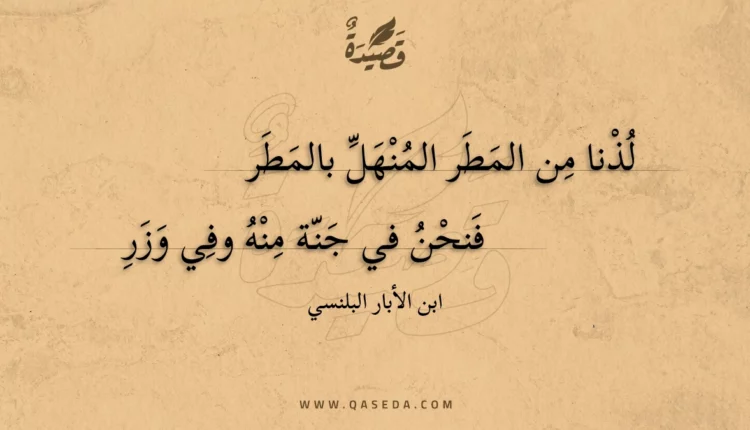 قَصِيدَةٌ
لُذْنا مِن المَطَر المُنْهَلِّ بالمَطَر
فَنحْنُ في جَنّة مِنْهُ وفِي وَزَرِ
ابن الأبار البلنسي
WWW.QASEDA.COM